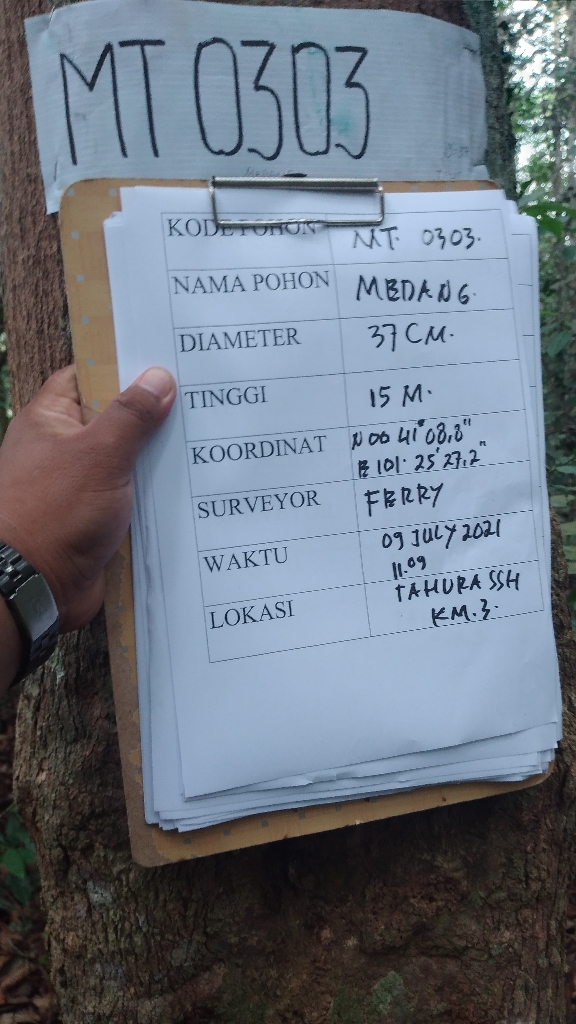 MT 0303
KODE POHON MT. 0303.
NAMA POHON MEDANG.
DIAMETER 37 CM.
TINGGI 15 M.
KOORDINAT N 00 41° 08,8"
E 101. 25' 27,2"
SURVEYOR FERRY
WAKTU 09 JULY 2021
11.09
LOKASI TAHURA SSH
KM.3.